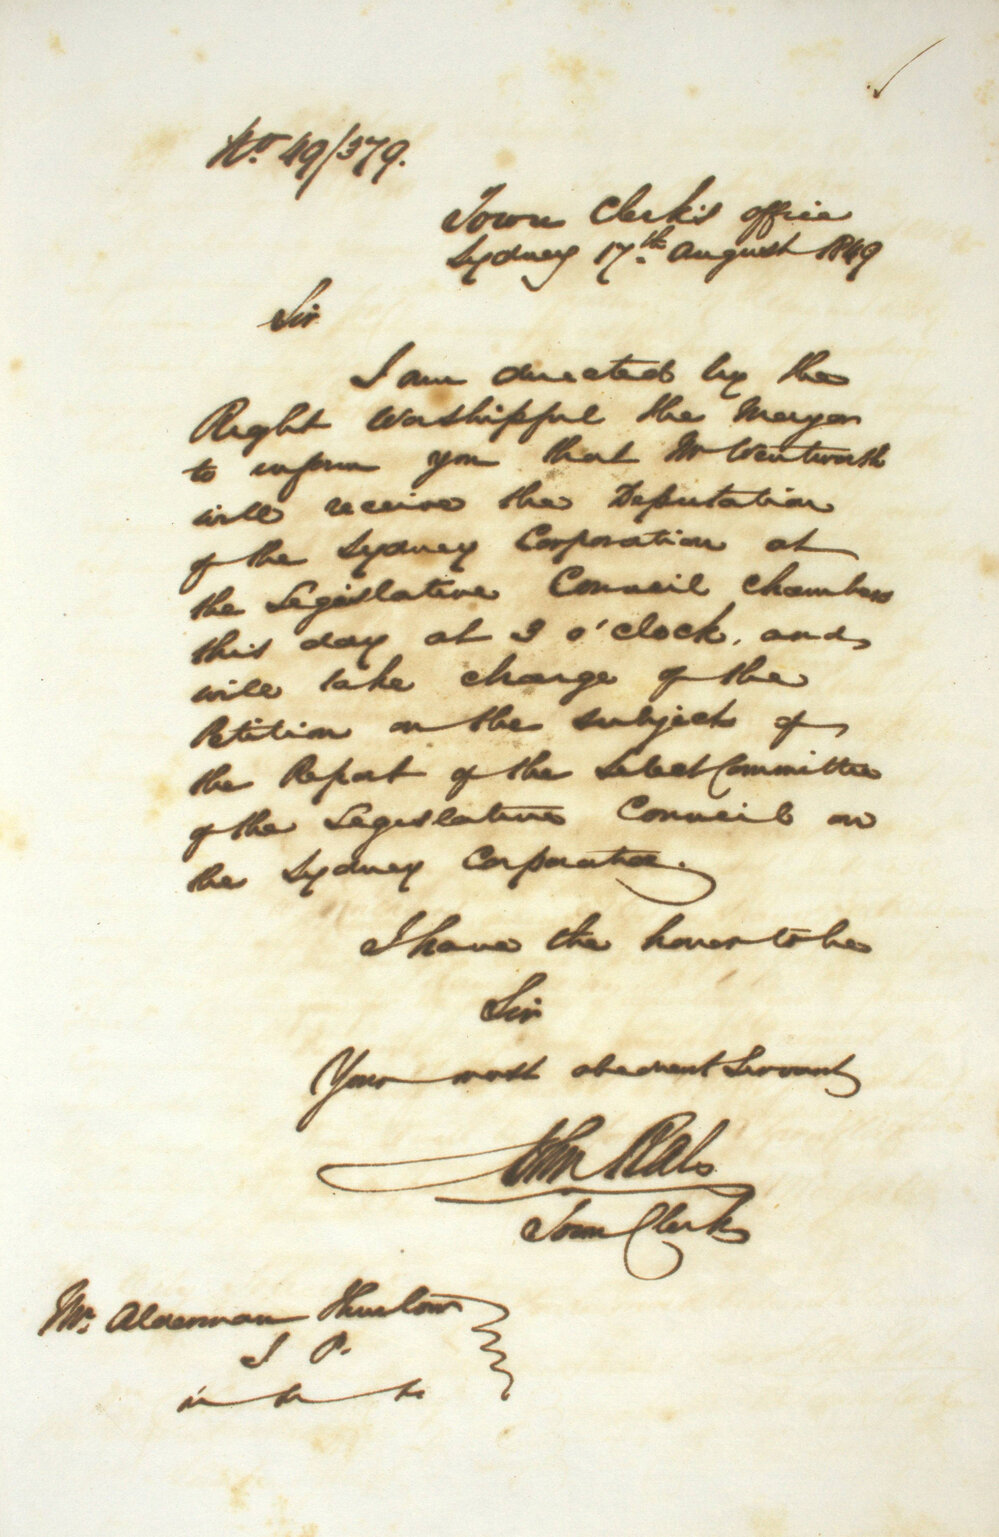 No. 49/379.
Town Clerk's office
Sydney 17th. August 1849
Sir
I am directed by the
Right Worshipful the Mayor
to inform you that Mr Wentworth
will receive the Deputation
of the Sydney Corporation at
the Legislative Council Chambers
this day at 3 o'clock, and
will take charge of the
Petition on the subject of
the Report of the Select Committee
of the Legislative Council on
the Sydney Corporation.
I have the honor to be
Sir
Your most obedient Servant
John Rae
Town Clerk
Mr. Alderman Thurlow
J P.